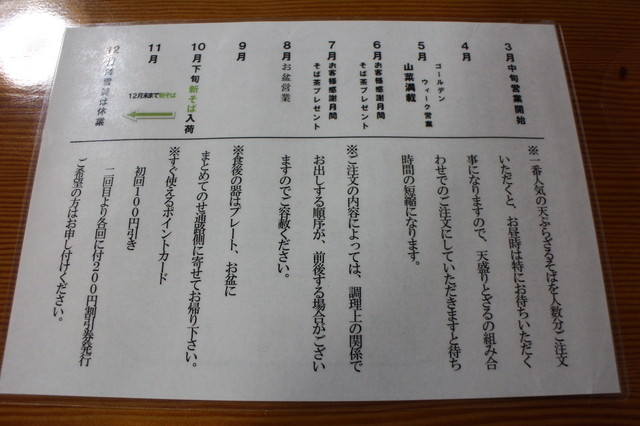 3月中旬営業開始
4月
ゴールデン
ウィーク営業
5月
山菜満載
6月お客様感謝月間
そば茶プレゼント
7月お客様感謝月間
そば茶プレゼント
8月お盆営業
9月
10月下旬新そば入荷
12月末まで新そば
11月
12月
は休業
※一番人気の天ぷらざるそばを人数分ご注文
いただくと、お昼時は特にお待ちいただく
事になりますので、天盛りとざるの組み合
わせでのご注文にしていただきますと待ち
時間の短縮になります。
※ご注文の内容によっては、調理上の関係で
お出しする順序が、前後する場合がござい
ますのでご容赦ください。
※食後の器はプレート、お盆に
まとめてのせ通路側に寄せてお帰り下さい。
※すぐ使えるポイントカード
初回100円引き
二回目より各回に付200円割引券発行
ご希望の方はお申し付けください。